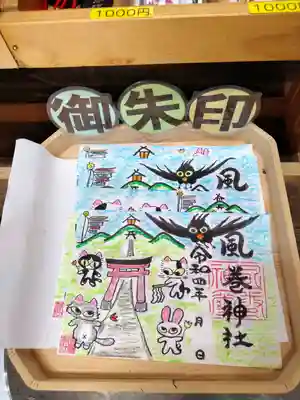 1000円
1000円
御朱印
風
風巻神社
令和四年 月 日